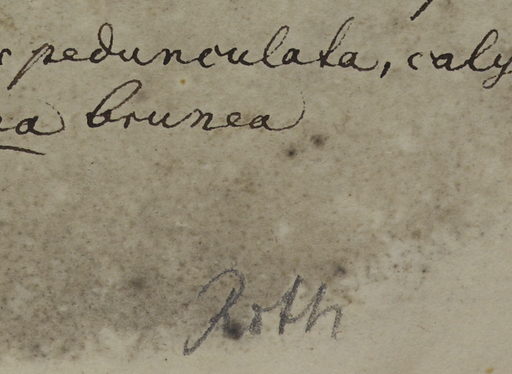 pedunculata, caly
ea brunea
Roth